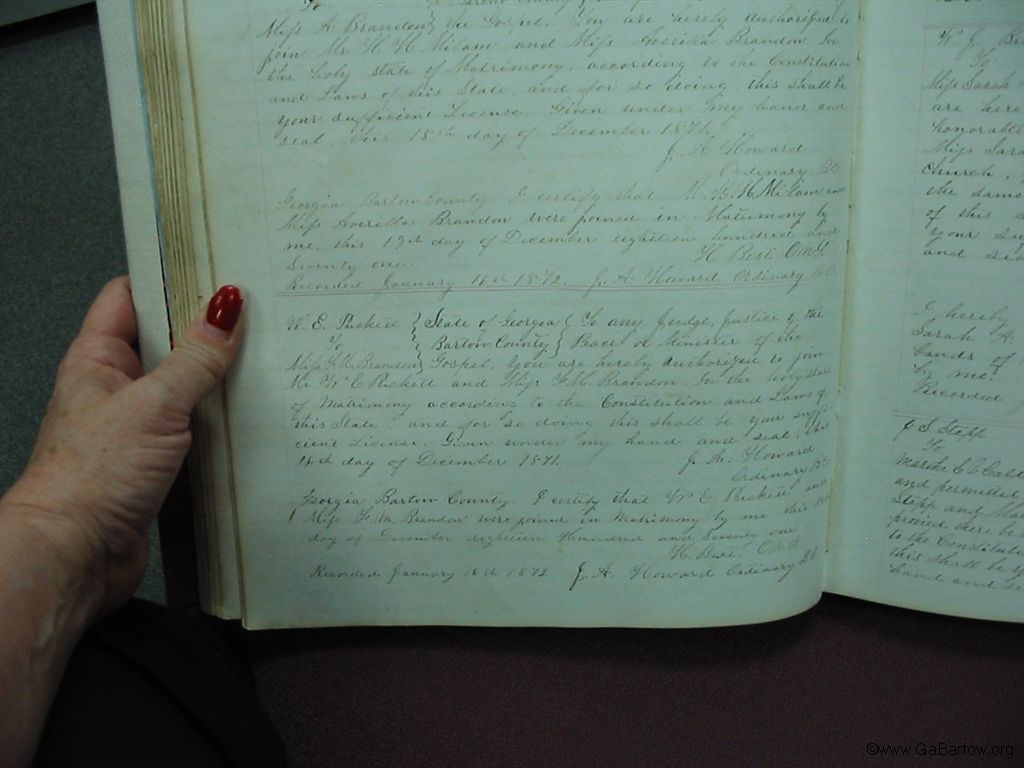 To
Miss A Brandon } the Gospel. You are hereby authorized to
join Mr H H Milam and Miss Averilla Brandon In
the holy state of Matrimony, according to the Constitution
and Laws of this State, and for so doing, this shall be
your sufficient License. Given under my hand and
seal, this 18th day of December 1871.
J. A Howard
Ordinary B.C
Georgia Bartow County. I certify that Mr H. H Milam and
Miss Averilla Brandon were joined in Matrimony by
me, this 19th day of December eighteen hundred and
Seventy one. H Best O.M.G.
Recorded January 16th 1872. J. A. Howard Ordinary B.C
W. E. Puckett } State of Georgia { To any Judge, Justice of the
To } Bartow County } Peace or Minister of the
Miss F. M. Brandon } Gospel, You are hereby authorized to join
Mr W E Puckett and Miss F M. Brandon. In the holy state
of Matrimony according to the Constitution and Laws of
this State and for so doing this shall be your suffi
cient License. Given under my hand and seal, this
16th day of December 1871. J. A. Howard
Ordinary B C
Georgia Bartow County. I certify that W E Puckett and
Miss F. M. Brandon were joined in Matrimony by me this
day of December eighteen Hundred and Seventy one
H. Best O.M.G
Recorded January 16th 1872 J. A. Howard Ordinary B.C
W. J.
To
Miss Sarah
are here
honorable
Miss Sara
church
the same
of this
your su
and sea
I hereby
Sarah A
bands of
by me.
Recorded
J S Stepp
To
Martha C C
and permitted
Stepp and Mar
provied there be
to the Constitut
this shall be y
hand and se
©www.GaBartow.org